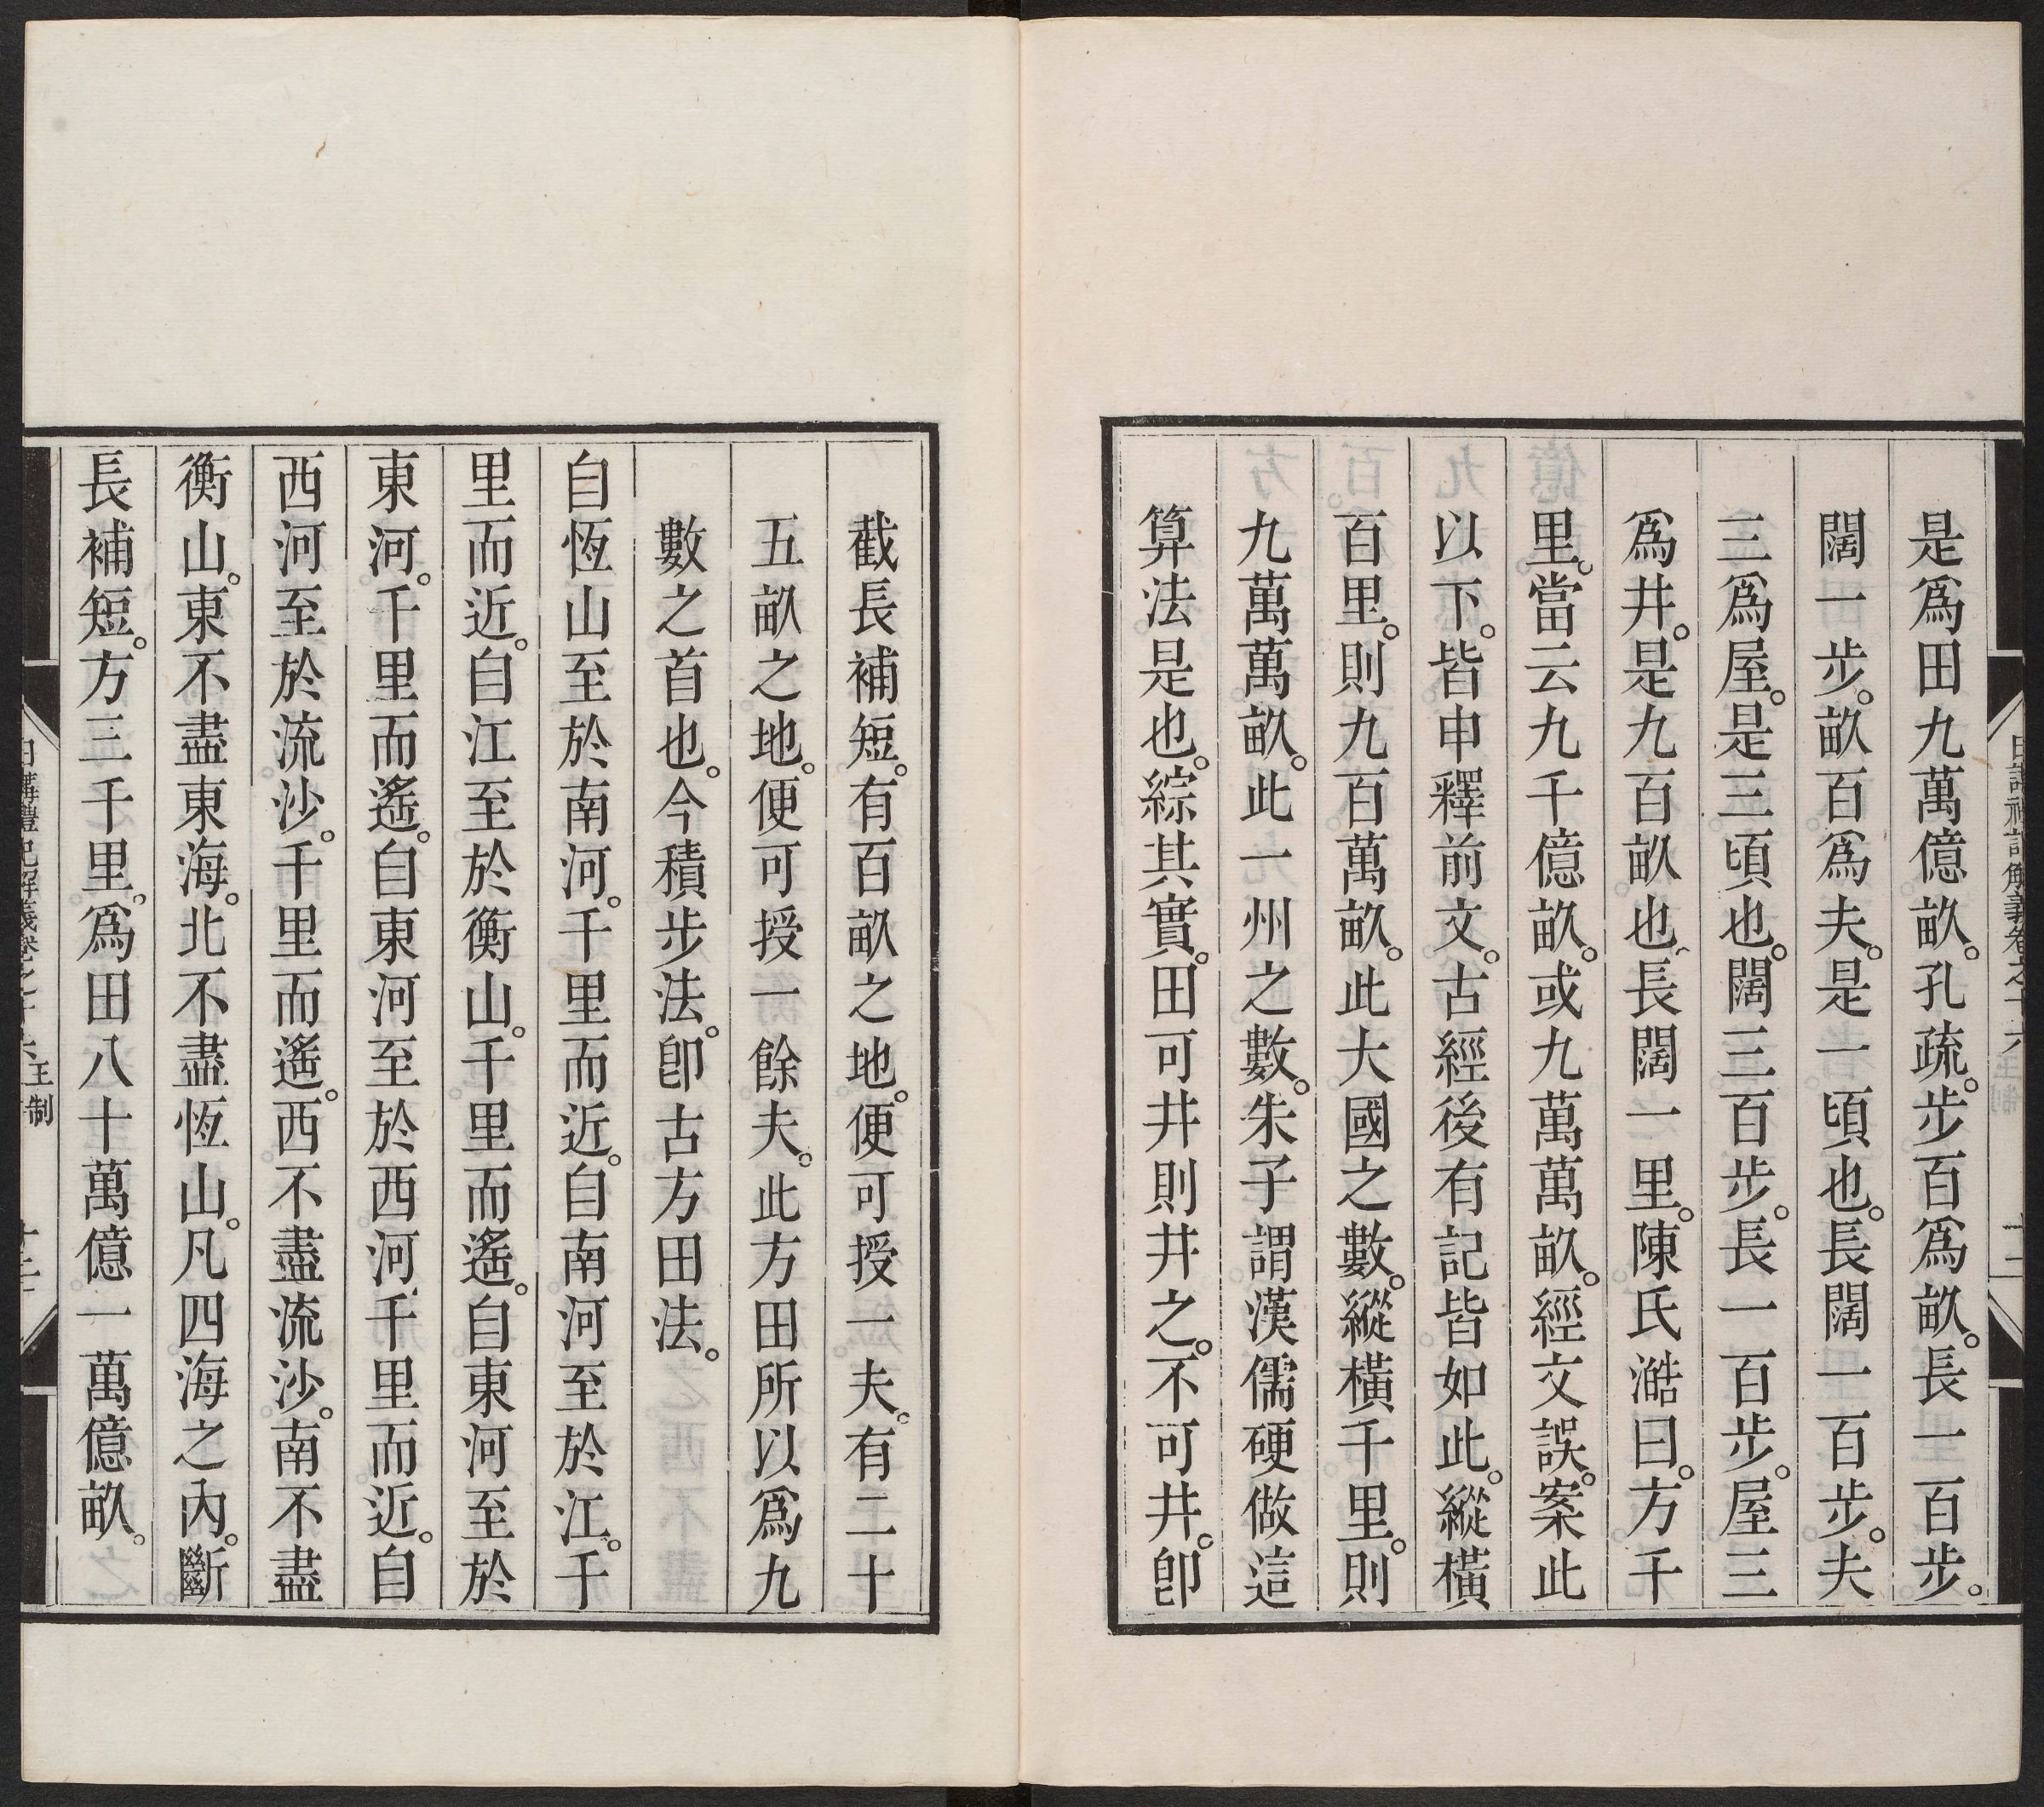 是爲田九萬億畝。孔疏。步百爲畝。長一百步。
闊一步。畝百爲夫。是一頃也。長闊一百步。夫
三爲屋。是三頃也。闊三百步。長一百步。屋三
爲井。是九百畝也、長闊一里。陳氏澔曰。方千
里。當云九千億畝。或九萬萬畝。經文誤。案此
以下。皆申釋前文。古經後有記皆如此。縱橫
百里。則九百萬畝。此大國之數。縱橫千里。則
九萬萬畝。此一州之數。朱子謂漢儒硬做這
算法是也。綜其實。田可井則井之。不可井。卽
截長補短。有百畝之地。便可授一夫。有二十
五畝之地。便可授一餘夫。此方田所以爲九
數之首也。今積步法。卽古方田法。
自恆山至於南河。千里而近。自南河至於江。千
里而近。自江至於衡山。千里而遙。自東河至於
東河。千里而遙。自東河至於西河、千里而近。自
西河至於流沙。千里而遙。西不盡流沙。南不盡
衡山。東不盡東海。北不盡恆山。凡四海之內。斷
長補短。方三千里。爲田八十萬億一萬億畝。
日講禮記解義卷之十六 王制 十二